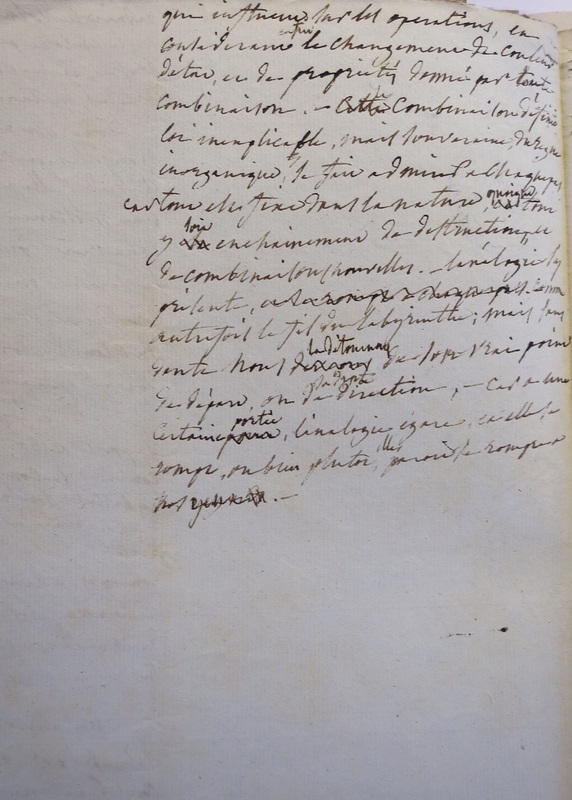 qui influent sur les operations, en
considerant enfin le changement de couleur
d'état, et de propriétés donné par toute
combinaison. — Combinaison definie
loi inexplicable, mais souveraine du regne
inorganique, se fait admirer à chaque pas
car tout est fixe dans la nature, quoique tout
y soit enchainement de destruction, et
de combinaisons nouvelles. — l'analogie s'y
présente, comme
autrefois le fil du labyrinthe; mais sans
doute nous la détournons de son vrai point
de départ, ou de sa droite direction, — car à une
certaine portée, l'analogie égare, et elle se
rompt, ou bien plutôt, elle paroit se rompre à
nos yeux. —